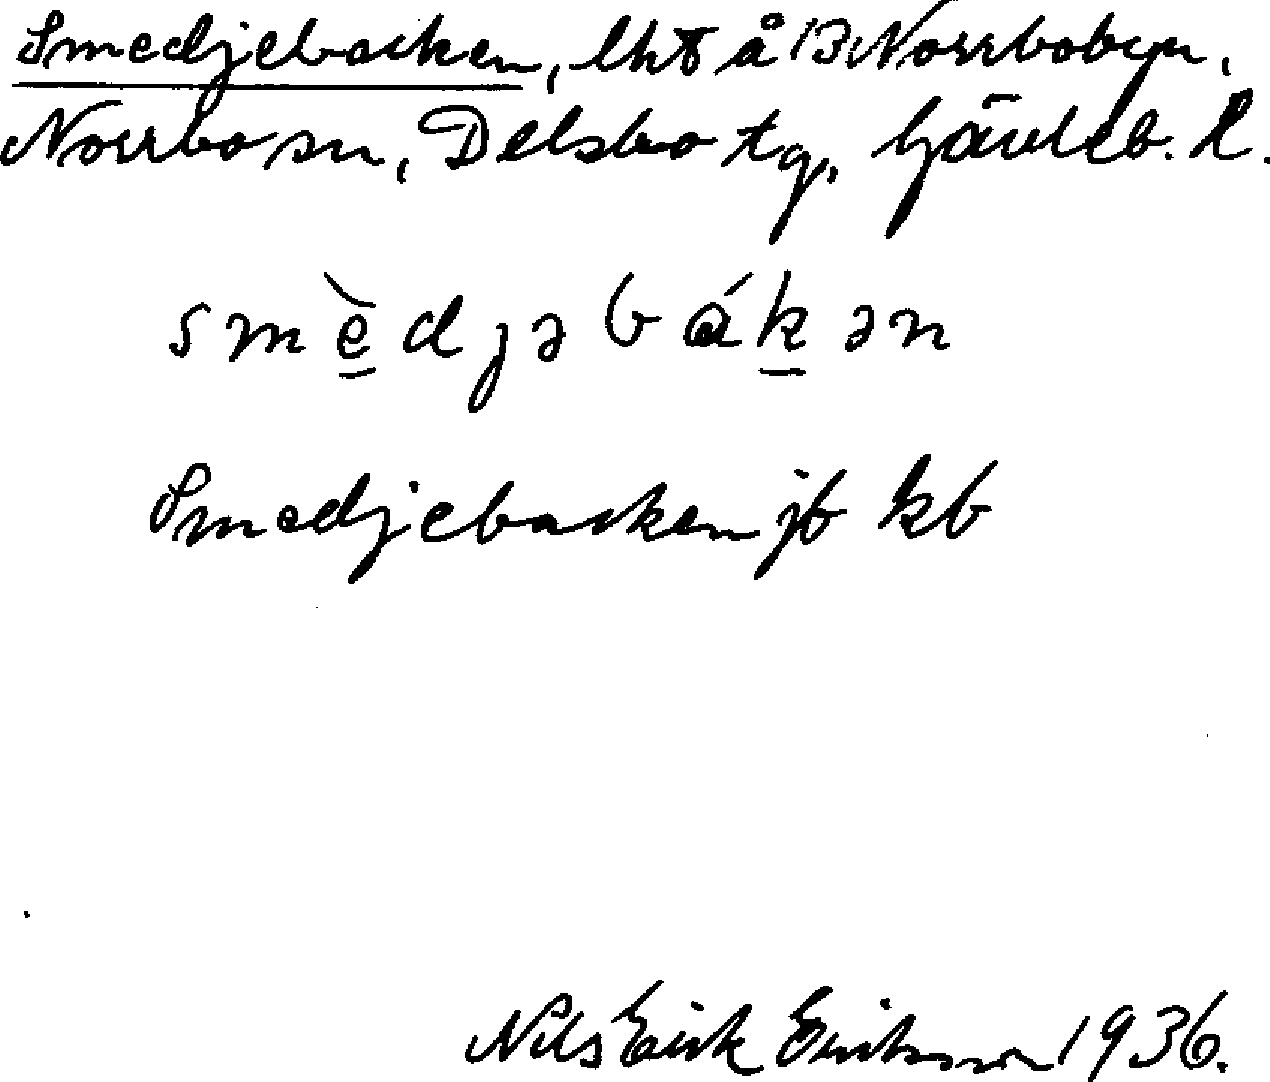 Smedjebacken, lht å 13 Norrbobyn,
Norrbo sn, Delsbo tg, Gävleb. l.
smè̱djəbáḵən
Smedjebacken jb kb
Nils Erik Eriksson 1936.